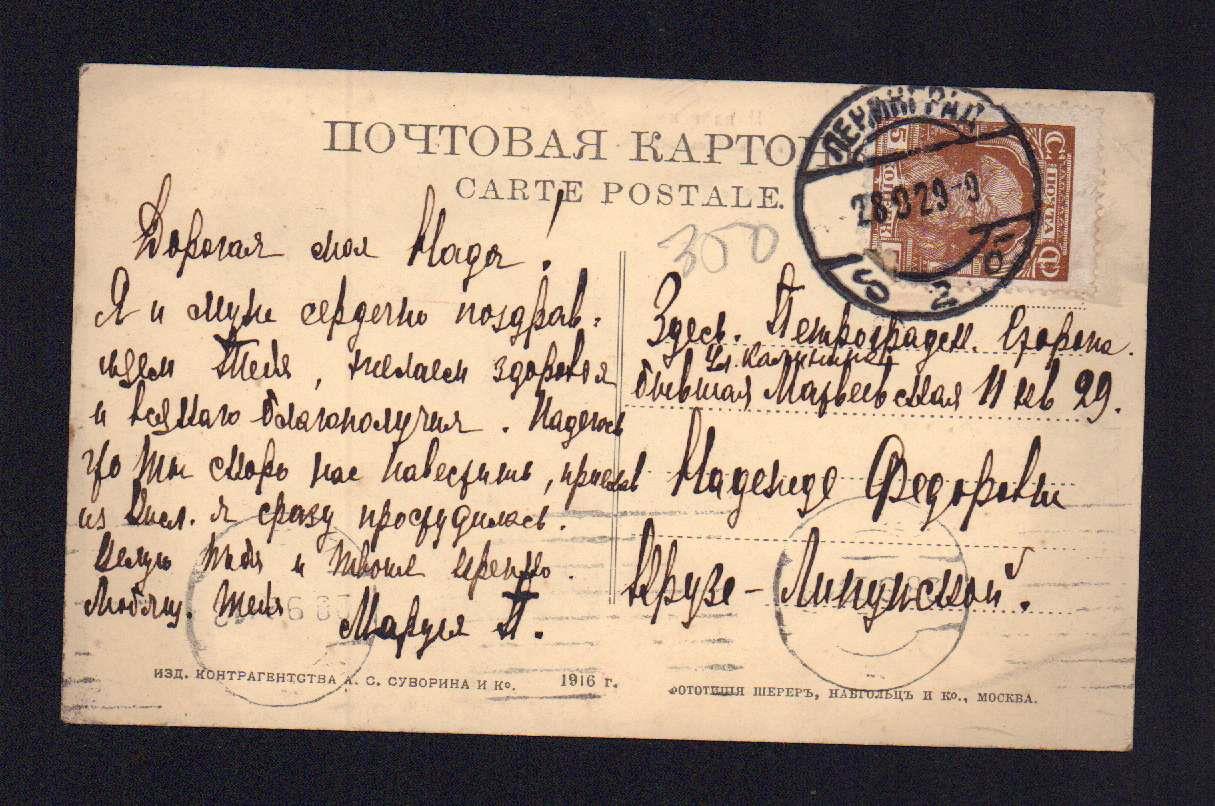 ПОЧТОВАЯ КАРТО
CARTE POSTALE.
ЛЕНИНГРАД
28.9.29-9
350
Дорогая моя Надя!
Я и муж сердечно поздрав-
ляем Тебя, желаем здоровья
и всякаго благополучия. Надеюсь
что ты скоро нас навестишь, приехав
из Кисл. я сразу простудилась.
Целую тебя и твоих крепко.
Любящ. Тебя
Маруся П.
Здесь. Петроградск. Сторона.
Ул. Калинина
бывшая Матвеевская 11 кв 29.
Надежде Федоровне
Крузе-Липунской.
ИЗД. КОНТРАГЕНТСТВА А. С. СУВОРИНА И Ко.
1916 г.
ФОТОТИПІЯ ШЕРЕРЪ, НАБГОЛЬЦЪ И Ко., МОСКВА.